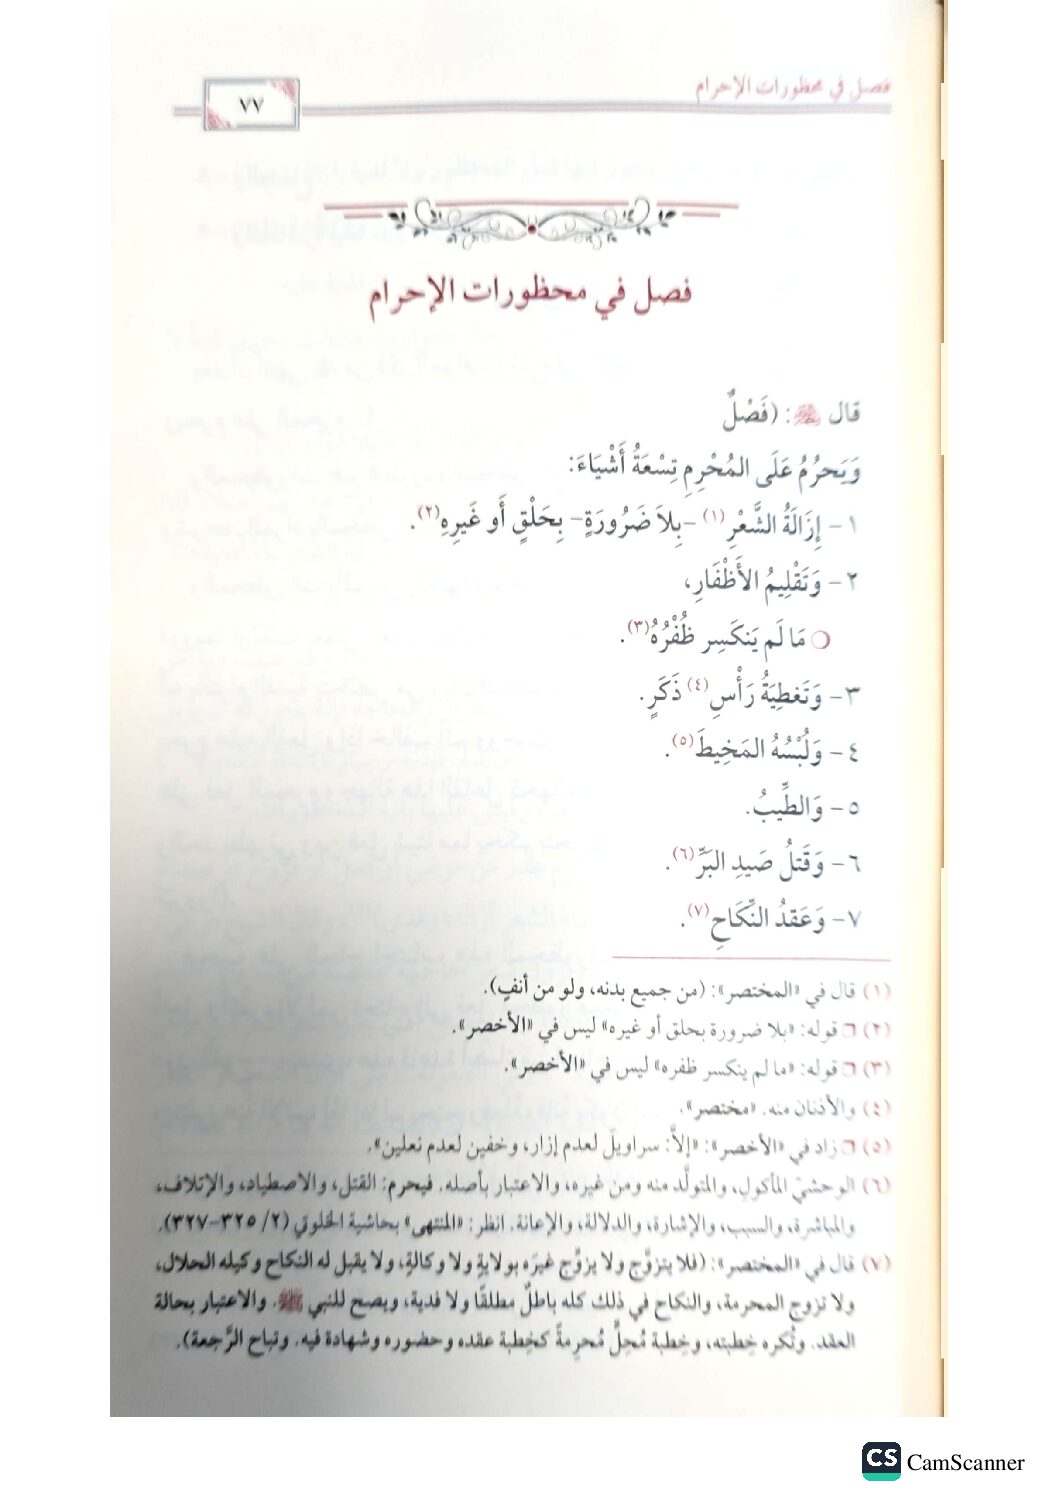 فصل في محظورات الإحرام
٧٧
فصل في محظورات الإحرام
قال ﷺ: (فَصْلٌ
وَيَحرُمُ عَلَى المُحْرِمِ تِسْعَةُ أَشْيَاءَ:
١- إِزَالَةُ الشَّعْرِ(١) -بِلاَ ضَرُورَةٍ- بِحَلْقٍ أَو غَيرِهِ(٢).
٢- وَتَقْلِيمُ الأَظْفَارِ،
○ مَا لَم يَنكَسِر ظُفْرُهُ(٣).
٣- وَتَغطِيَةُ رَأْسِ(٤) ذَكَرٍ.
٤- وَلُبْسُهُ المَخِيطَ(٥).
٥- وَالطِّيبُ.
٦- وَقَتلُ صَيدِ البَرِّ(٦).
٧- وَعَقدُ النِّكَاحِ(٧).
(١) قال في «المختصر»: (من جميع بدنه، ولو من أنفٍ).
(٢) قوله: «بلا ضرورة بحلق أو غيره» ليس في «الأخصر».
(٣) قوله: «ما لم ينكسر ظفره» ليس في «الأخصر».
(٤) والأذنان منه. «مختصر».
(٥) زاد في «الأخصر»: «إلاَّ: سراويلَ لعدم إزار، وخفين لعدم نعلين».
(٦) الوحشيّ المأكولِ، والمتولَّد منه ومن غيره، والاعتبار بأصله. فيحرم: القتل، والاصطياد، والإتلاف،
والمباشرة، والسبب، والإشارة، والدلالة، والإعانة. انظر: «المنتهى» بحاشية الخلوتي (٢/ ٣٢٥-٣٢٧).
(٧) قال في «المختصر»: (فلا يتزوَّج ولا يزوِّج غيرَه بولايةٍ ولا وكالةٍ، ولا يقبل له النكاح وكيله الحلال،
ولا تزوج المحرمة، والنكاح في ذلك كله باطلٌ مطلقًا ولا فدية، ويصح للنبي ﷺ. والاعتبار بحالة
العقد. وتُكره خِطبته، وخِطبة مُحِلٍّ مُحرِمةً كخِطبة عقده وحضوره وشهادة فيه. وتباح الرَّجعة).
CS CamScanner